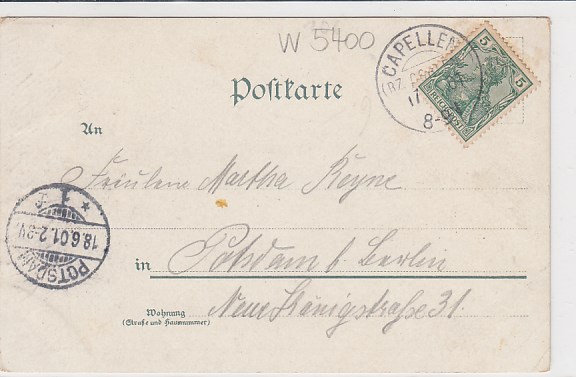 W 5400
CAPELLEN
5 5
REICHSPOST
8-
Postkarte
An
Fräulene Martha Keyne
POTSDAM
1
18.6.01.2-3N.
in Potsdam b. Berlin
Wohnung
(Straße und Hausnummer)
Neue Königstraße 31.